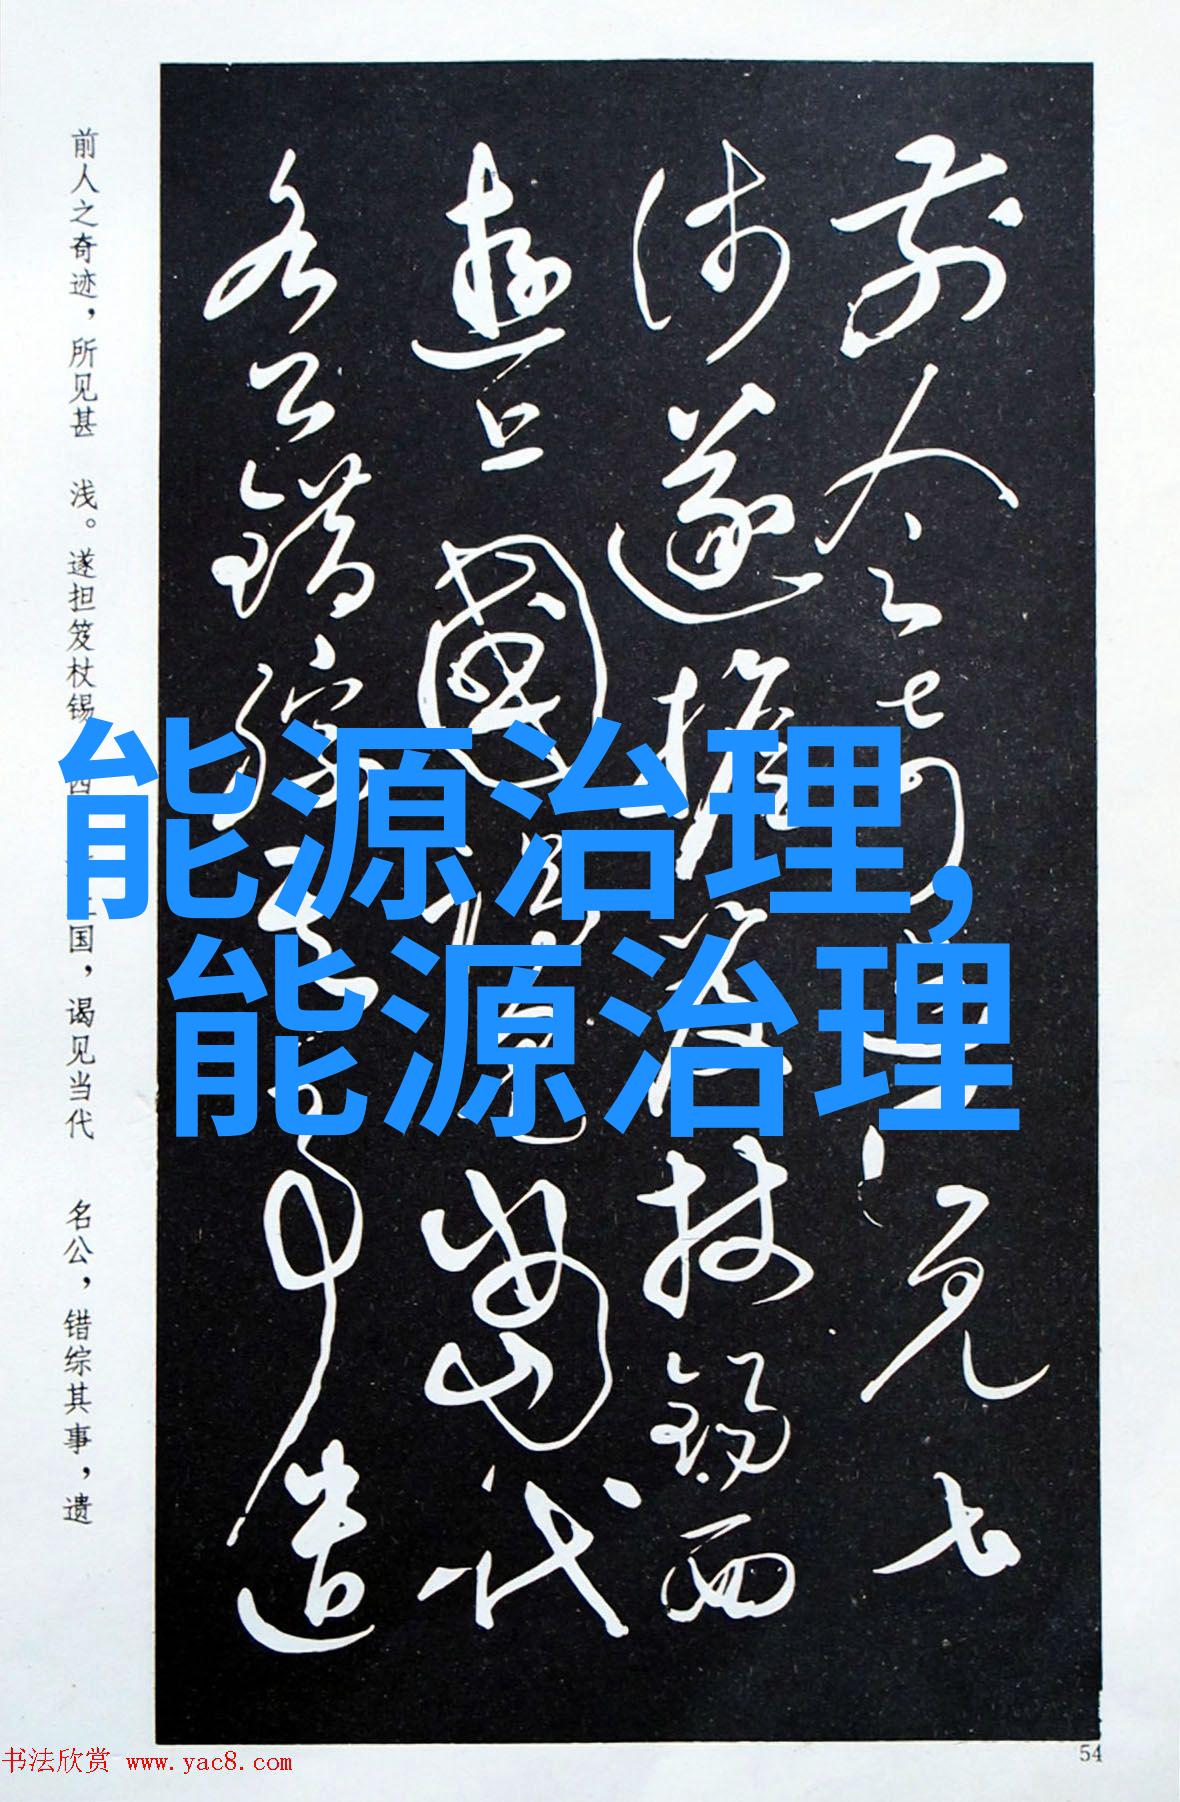 前人之奇迹，所见甚 浅。遂担笈杖锡 西 国，谒见当代 名公，错综其事，遗
能源治理，
能源治理
书法欣赏 www.yac8.com
54